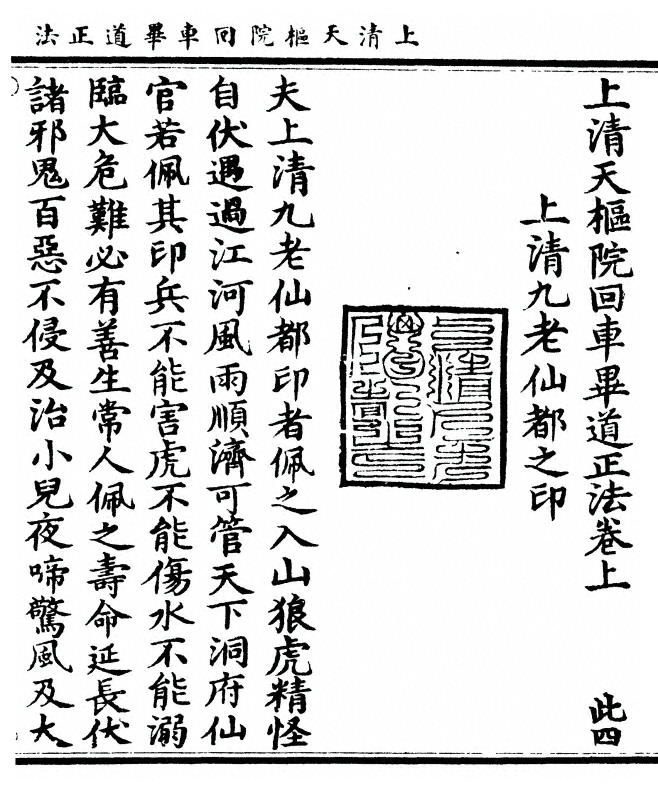 上清天樞院回車畢道正法
上清天樞院回車畢道正法卷上 此四
上清九老仙都之印
夫上清九老仙都印者佩之入山狼虎精怪
自伏遇過江河風雨順濟可管天下洞府仙
官若佩其印兵不能害虎不能傷水不能溺
臨大危難必有善生常人佩之壽命延長伏
諸邪鬼百惡不侵及治小兒夜啼驚風及大